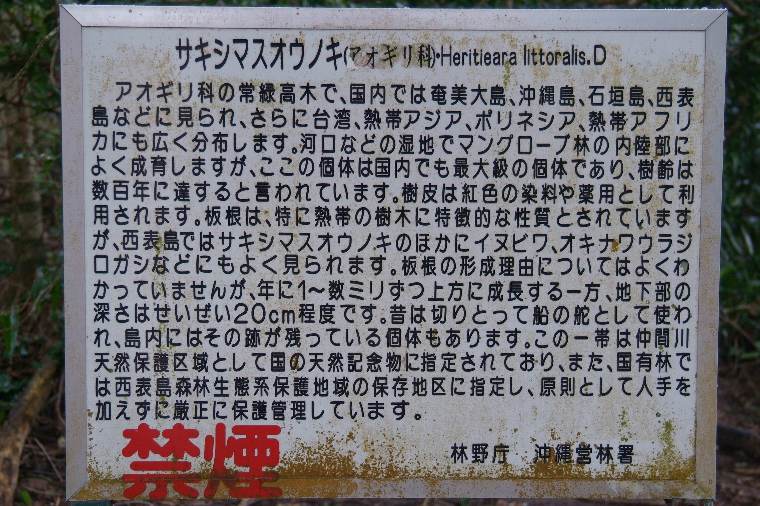 サキシマスオウノキ(アオギリ科)・Heritieara littoralis.D
アオギリ科の常緑高木で、国内では奄美大島、沖縄島、石垣島、西表
島などに見られ、さらに台湾、熱帯アジア、ポリネシア、熱帯アフリ
カにも広く分布します。河口などの湿地でマングローブ林の内陸部に
よく成育しますが、ここの個体は国内でも最大級の個体であり、樹齢は
数百年に達すると言われています。樹皮は紅色の染料や薬用として利
用されます。板根は、特に熱帯の樹木に特徴的な性質とされています
が、西表島ではサキシマスオウノキのほかにイヌビワ、オキナワウラジ
ロガシなどにもよく見られます。板根の形成理由についてはよくわ
かっていませんが、年に1〜数ミリずつ上方に成長する一方、地下部の
深さはせいぜい20cm程度です。昔は切りとって船の舵として使わ
れ、島内にはその跡が残っている個体もあります。この一帯は仲間川
天然保護区域として国の天然記念物に指定されており、また、国有林で
は西表島森林生態系保護地域の保存地区に指定し、原則として人手を
加えずに厳正に保護管理しています。
禁煙
林野庁 沖縄営林署